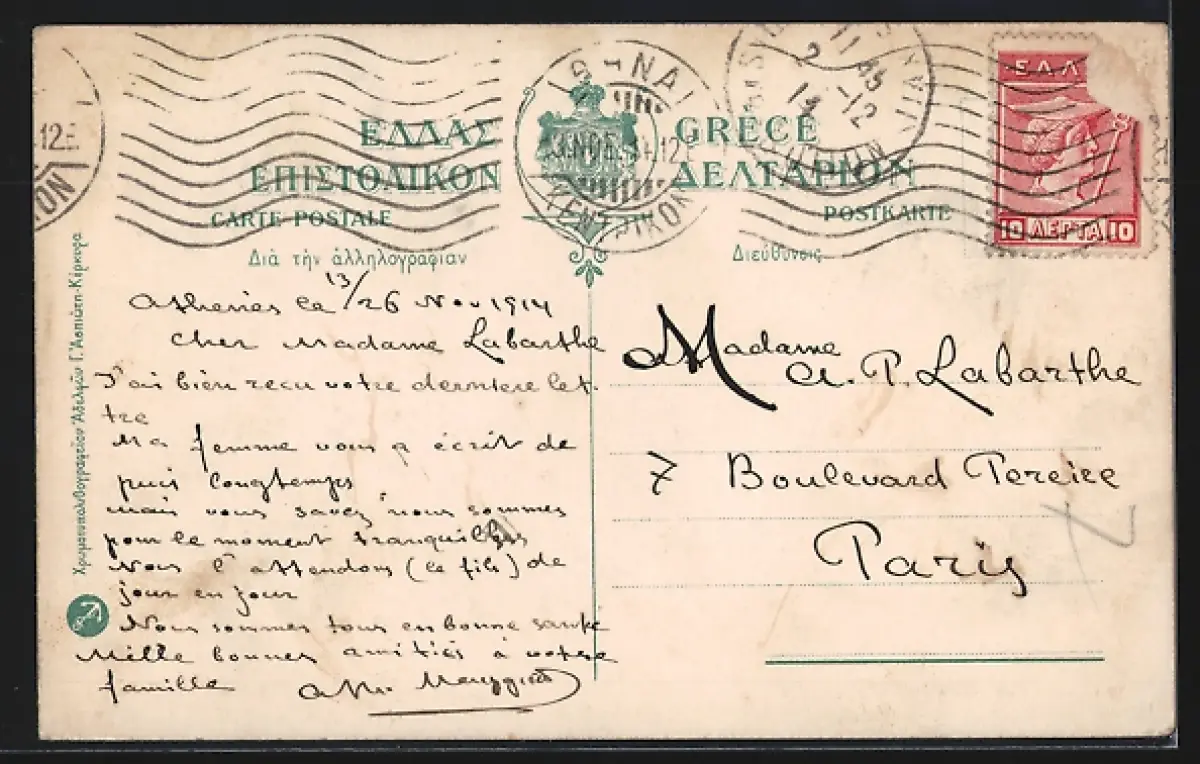 ΕΛΛΑΣ GRECE
ΕΠΙΣΤΟΛΙΚΟΝ ΔΕΛΤΑΡΙΟΝ
CARTE POSTALE POSTKARTE
Διὰ τὴν ἀλληλογραφίαν
Διεύθυνσις
ΕΛΛ
10 ΛΕΠΤΑ 10
ΑΘΗΝΑΙ
ΝΟΕ
12
Χρωμοτυπολιθογραφεῖον Ἀδελφῶν Γ. Ἀσπιώτη-Κέρκυρα
Athènes le 13/26 Nov 1914
Cher Madame Labarthe
J'ai bien reçu votre dernière let-
tre
Ma femme vous a écrit de
puis longtemps
mais vous savez nous sommes
pour le moment tranquilles
Nous l'attendons (le fils) de
jour en jour
Nous sommes tous en bonne santé
Mille bonnes amitiés à votre
famille
Madame
A. P. Labarthe
7 Boulevard Pereire
Paris